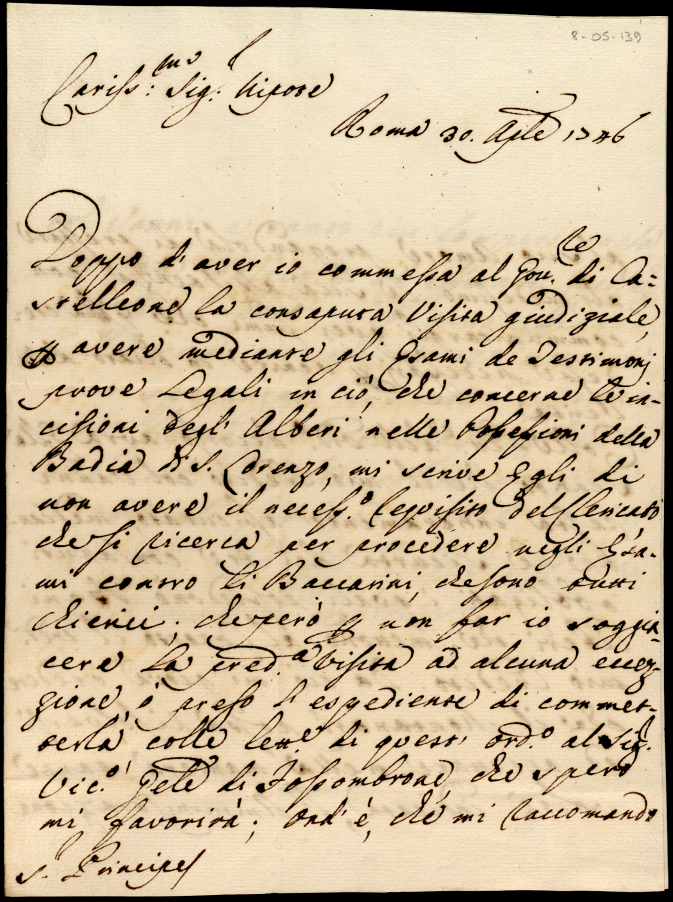 8-05-139
Cariss:mo Sig:r Nipote
Roma 30. Aple 1746
Doppo d'aver io commessa al Gov.te di Ca-
stelleone la consaputa Visita giudiziale,
p avere mediante gli Esami de Testimonj
prove Legali in ciò, che concerne le in-
cisioni degl' Alberi nelle Possessioni della
Badia di S. Lorenzo, mi scrive Egli di
non avere il necess.o requisito del Clericato
che si ricerca per procedere negli Esa-
mi contro li Baccarini, che sono tutti
chierici; che però p non far io soggia-
cere la pred.a Visita ad alcuna ecce-
zione, ò preso l'espediente di commet-
terla colle lett.e di quest' ord.o al Sig.r
Vic.o Gele di Fossombrone, che spero
mi favorirà; ond' è, che mi raccomando
S.r Principe